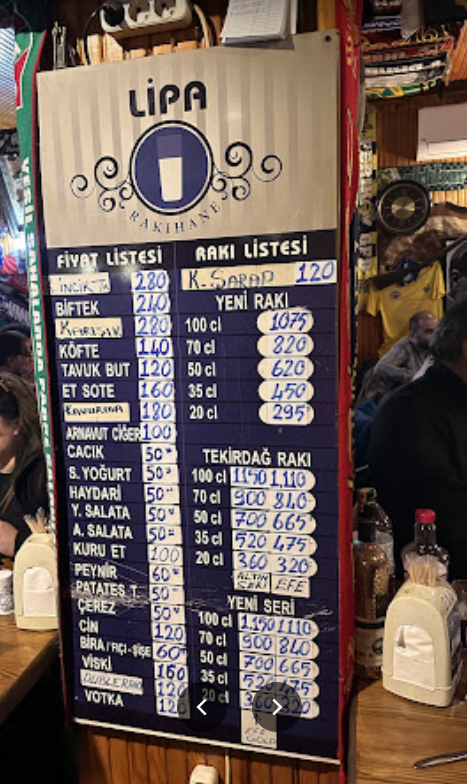 LİPA
RAKIHANE
FİYAT LİSTESİ
İNCİK TA 280
BİFTEK 240
KARIŞIK 280
KÖFTE 140
TAVUK BUT 120
ET SOTE 160
KAVURMA 180
ARNAVUT CİĞER 100
CACIK 50
S. YOĞURT 50
HAYDARİ 50
Y. SALATA 50
A. SALATA 50
KURU ET 100
PEYNİR 60
PATATES T. 50
ÇEREZ 50
CİN 120
BİRA / FIÇI - ŞİŞE 60
VİSKİ 160
DUBLE RAKI 120
VOTKA 120
RAKI LİSTESİ
K. ŞARAP 120
YENİ RAKI
100 cl 1075
70 cl 820
50 cl 620
35 cl 450
20 cl 295
TEKİRDAĞ RAKI
100 cl 1150 1,110
70 cl 900 840
50 cl 700 665
35 cl 520 475
20 cl 360 320
ALTIN SERİ EFE
YENİ SERİ
100 cl 1.150 1110
70 cl 900 840
50 cl 700 665
35 cl 520 475
20 cl 360 320
EFE